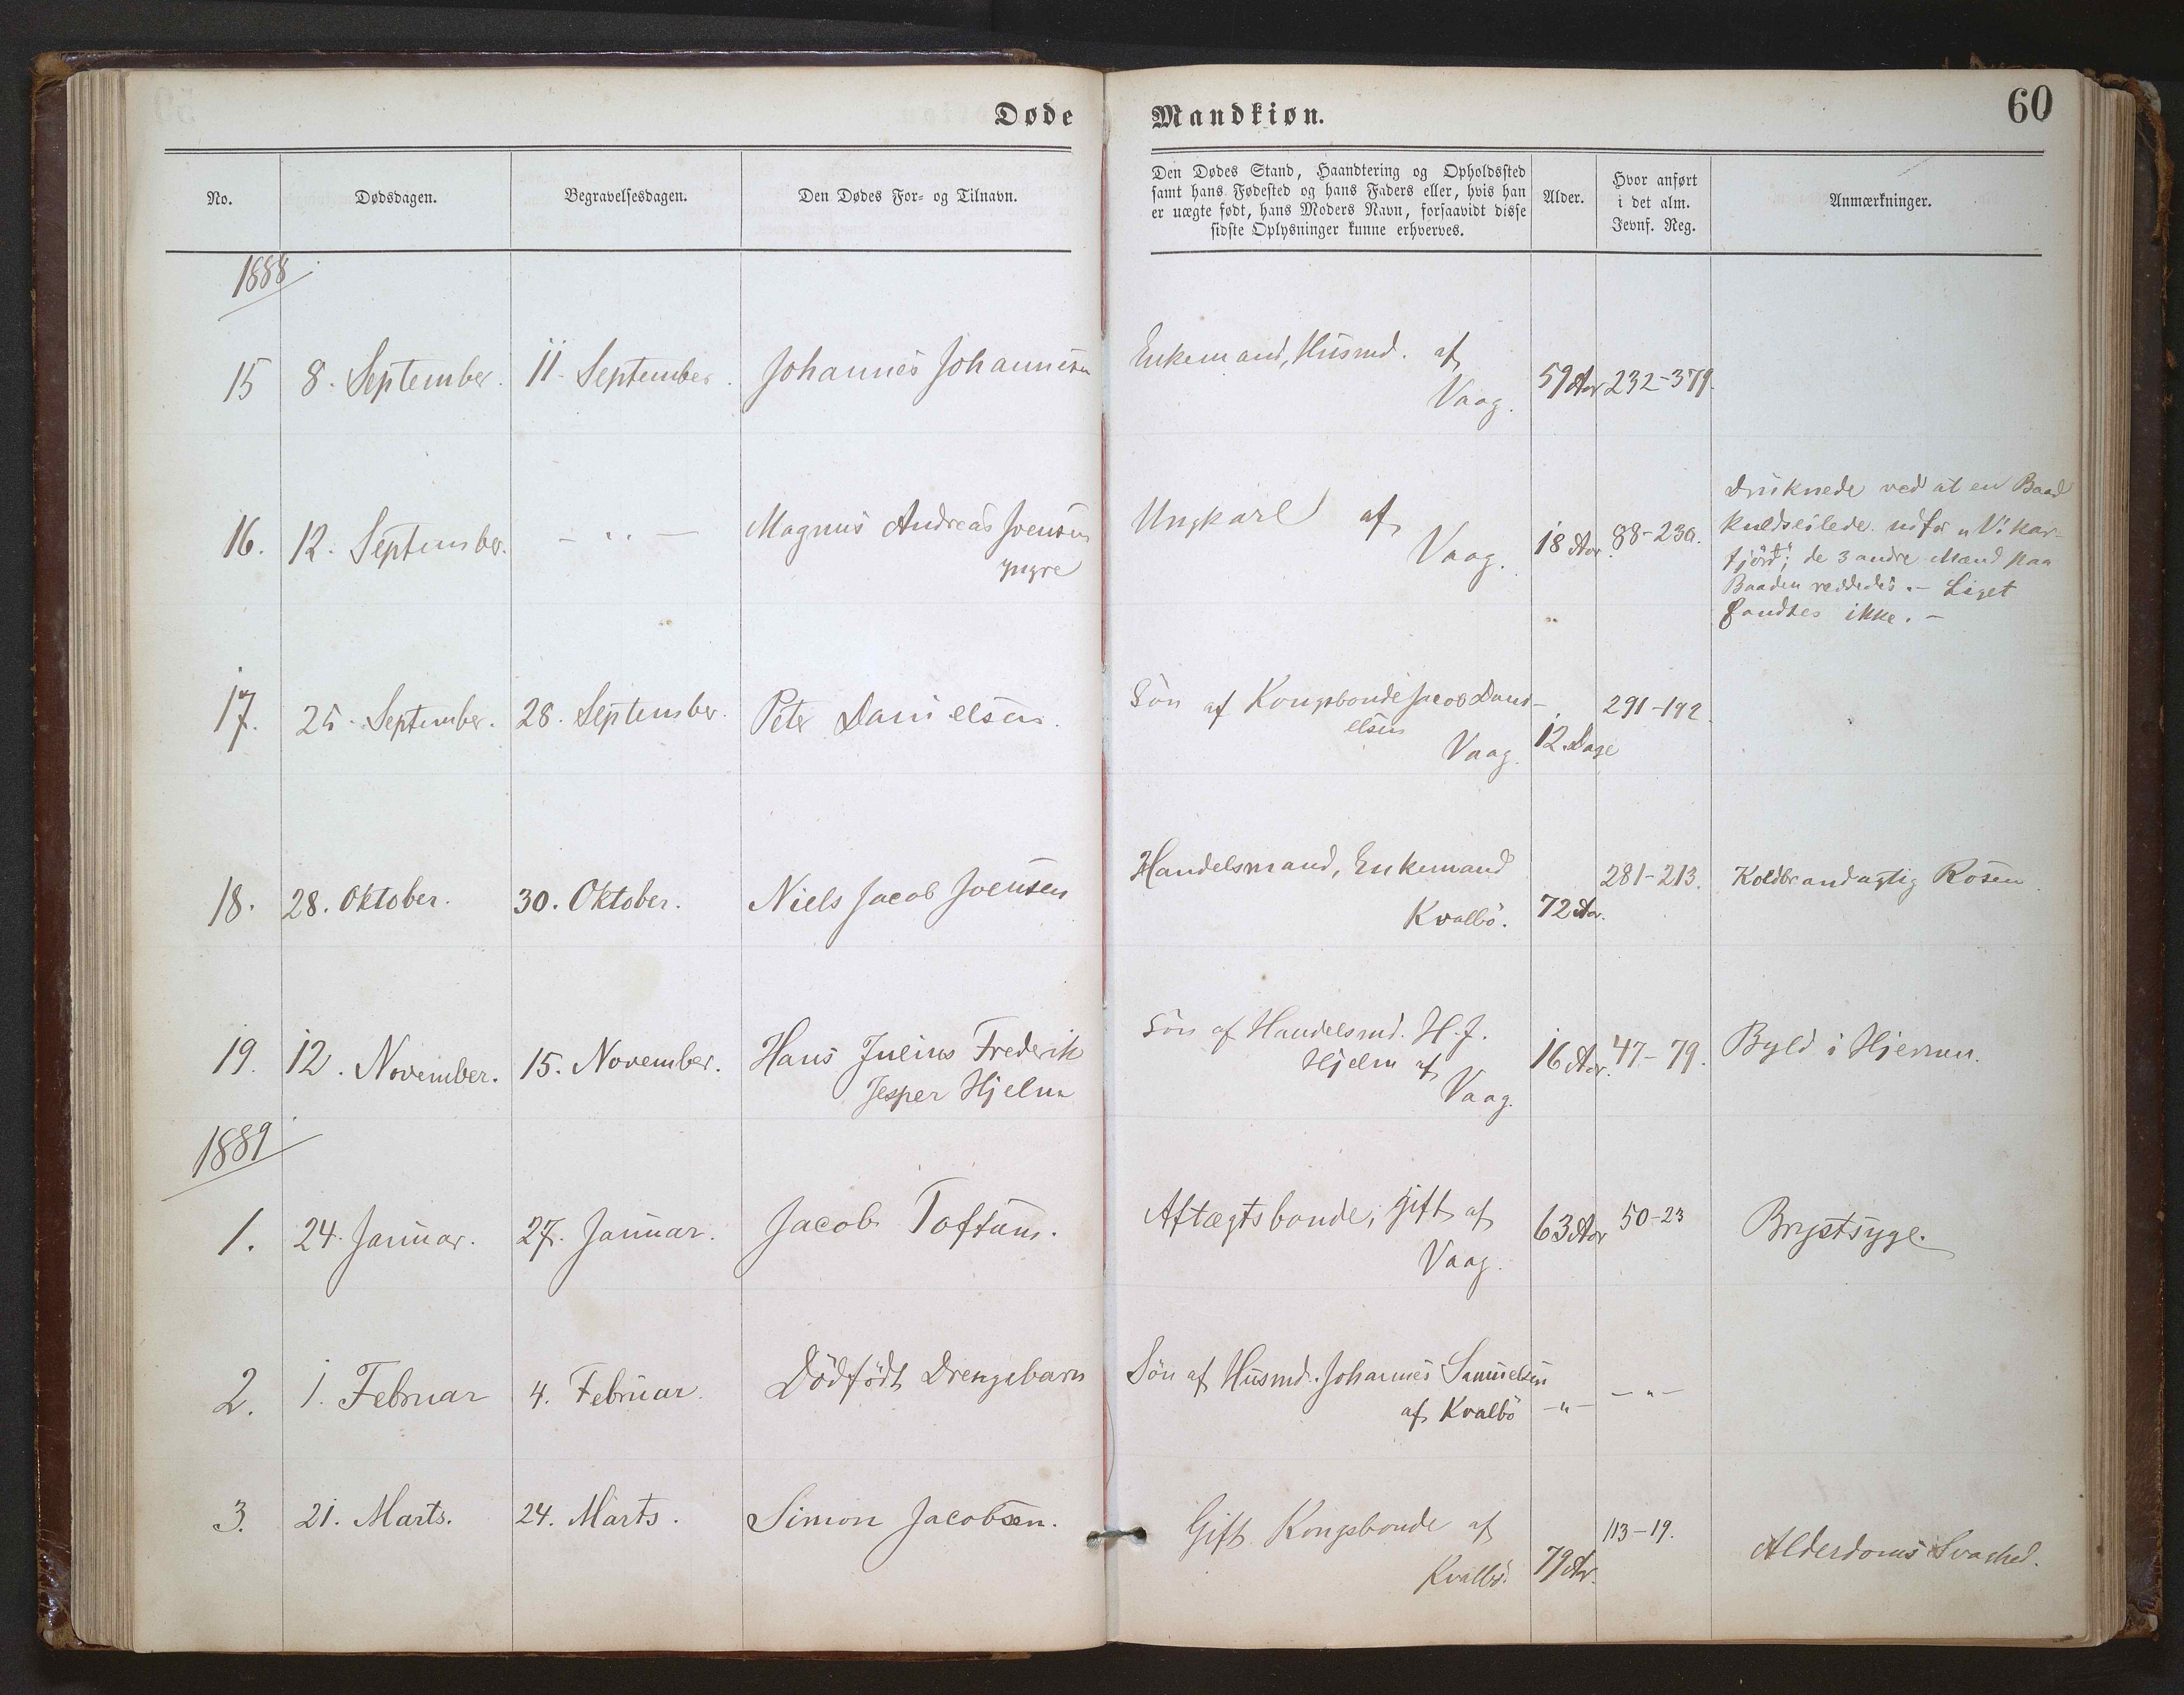 Døde Mandkiøn. 60
No. Dødsdagen. Begravelsesdagen. Den Dødes For- og Tilnavn.
Den Dødes Stand, Haandtering og Opholdssted
samt hans Fødested og hans Faders eller, hvis han
er uægte født, hans Moders Navn, forsaavidt disse
sidste Oplysninger kunne erhverves.
Alder.
Hvor anført
i det alm.
Jevnf. Reg.
Anmærkninger.
1888
15 8. September. 11. September. Johannes Johannesen
Enkemand, Husmd. af
Vaag.
59 Aar 232-379.
16. 12. September. - " - Magnus Andreas Joensen
yngre
Ungkarl af
Vaag.
18 Aar. 88-230.
Druknede ved at en Baad
kuldseilede udfor "Vikar-
fjörd"; de 3 andre Mænd paa
Baaden reddedes. - Liget
fandtes ikke. -
17. 25. September. 28. September. Peter Danielsen.
Sön af Kongsbonde Jacob Dani-
elsen
Vaag.
12 Dage
291-192.
18. 28. Oktober. 30. Oktober. Niels Jacob Joensen
Handelsmand, Enkemand
Kvalbö.
72 Aar.
281-213.
Koldbrandagtig Rosen.
19. 12. November. 15. November. Hans Julius Frederik
Jesper Hjelm
Sön af Handelsmd. H. J.
Hjelm af
Vaag.
16 Aar. 47-79.
Byld i Hjernen.
1889
1. 24. Januar. 27. Januar. Jacob Toftum.
Aftægtsbonde, gift af
Vaag.
63 Aar 50-23
Brystsyge.
2. 1. Februar 4. Februar. Dödfödt Drengebarn
Sön af Husmd. Johannes Samuelsen
af Kvalbö
-"- -"-
3. 21. Marts. 24. Marts. Simon Jacobsen.
Gift Kongsbonde af
Kvalbö.
79 Ar.
113-19.
Alderdoms Svaghed.